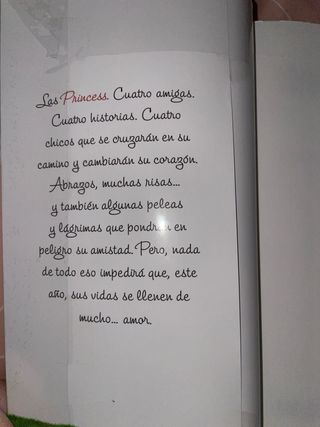 Las Princess. Cuatro amigas.
Cuatro historias. Cuatro
chicos que se cruzarán en su
camino y cambiarán su corazón.
Abrazos, muchas risas...
y también algunas peleas
y lágrimas que pondrán en
peligro su amistad. Pero, nada
de todo eso impedirá que, este
año, sus vidas se llenen de
mucho... amor.